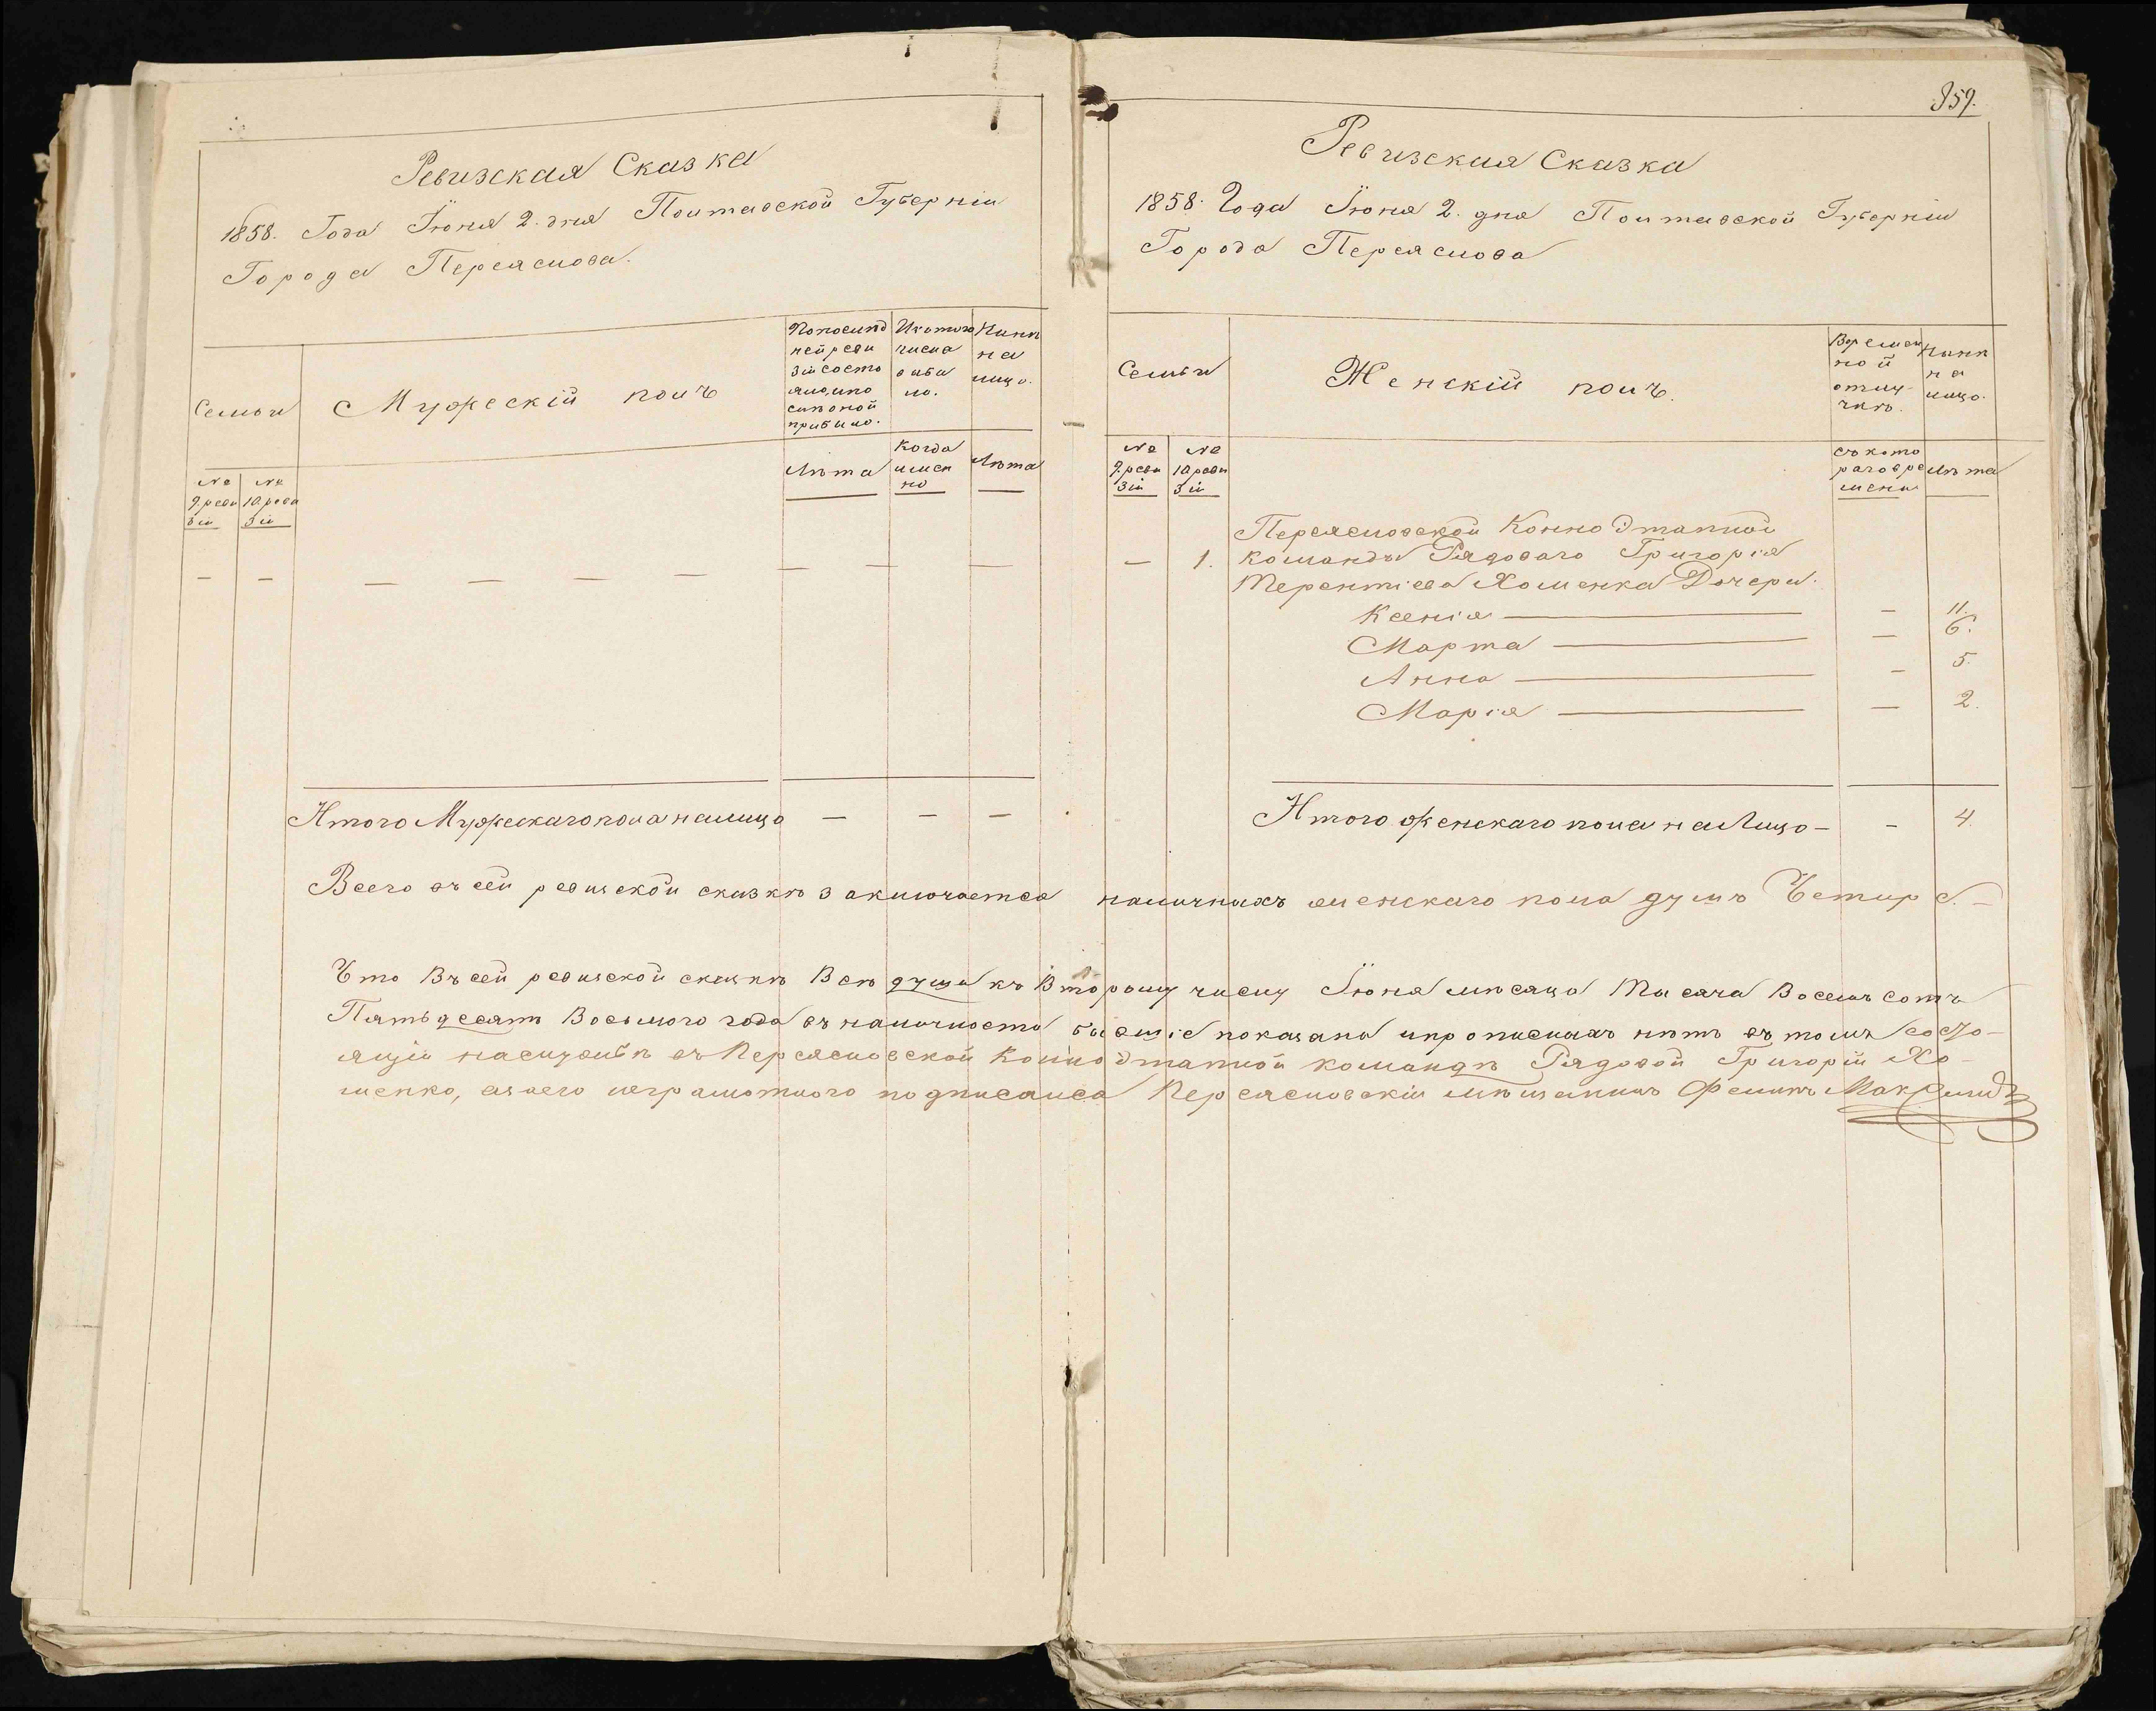 Ревизская Сказка
1858. Года Іюня 2. дня Полтавской Губерніи
Города Переяслова.
Семьи
Мужескій полъ
Попослѣд
ней реви
зіи состо
яло, ипо
слѣ оной
прибыло.
Изътого
числа
выбы
ло.
Нынѣ
на
лицо.
№
9. реви
зіи
№
10. реви
зіи
Лѣта
Когда
имен
но
Лѣта
— — — — — — — — —
Итого Мужескаго пола налицо — — —
359.
Ревизская Сказка
1858. Года Іюня 2. дня Полтавской Губерніи
Города Переяслова
Семьи
Женскій полъ.
Времен
ной
отлу-
чкѣ.
Нынѣ
на
лицо.
№
9. реви
зіи
№
10. реви
зіи
съ кото
раго вре
мени
Лѣта
Переясловской Конно Этапной
— 1. команды Рядоваго Григорія
Терентіева Хоменка Дочери.
Ксенія — 11.
Марта — 6.
Анна — 5.
Марія — 2.
Итого женскаго пола на Лицо — — 4.
Всего въ сей ревизской сказкѣ заключается наличныхъ женскаго пола душъ Четыре. —
Что Въ сей ревизской сказкѣ Всѣ души къ Второму числу Іюня мѣсяца Тысяча Восемь сотъ
Пятьдесятъ Восьмого года въ наличности бывшіе показаны ипрописныхъ нѣтъ въ томъ состо-
ящій наслужбѣ въ Переясловской Конно Этапной командѣ Рядовой Григорій Хо-
менко, азаего неграмотного подписался Переясловскій мѣщанинъ